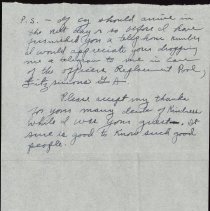 P.S. - If my car should arrive in
the next day or so before I have
furnished you a telephone number
I would appreciate your dropping
me a telegram to me in care
of the Officers Replacement Pool,
Fitzsimons G.H.
Please accept my thanks
for your many deeds of kindness
while I was your guest. It
sure is good to know such good
people.